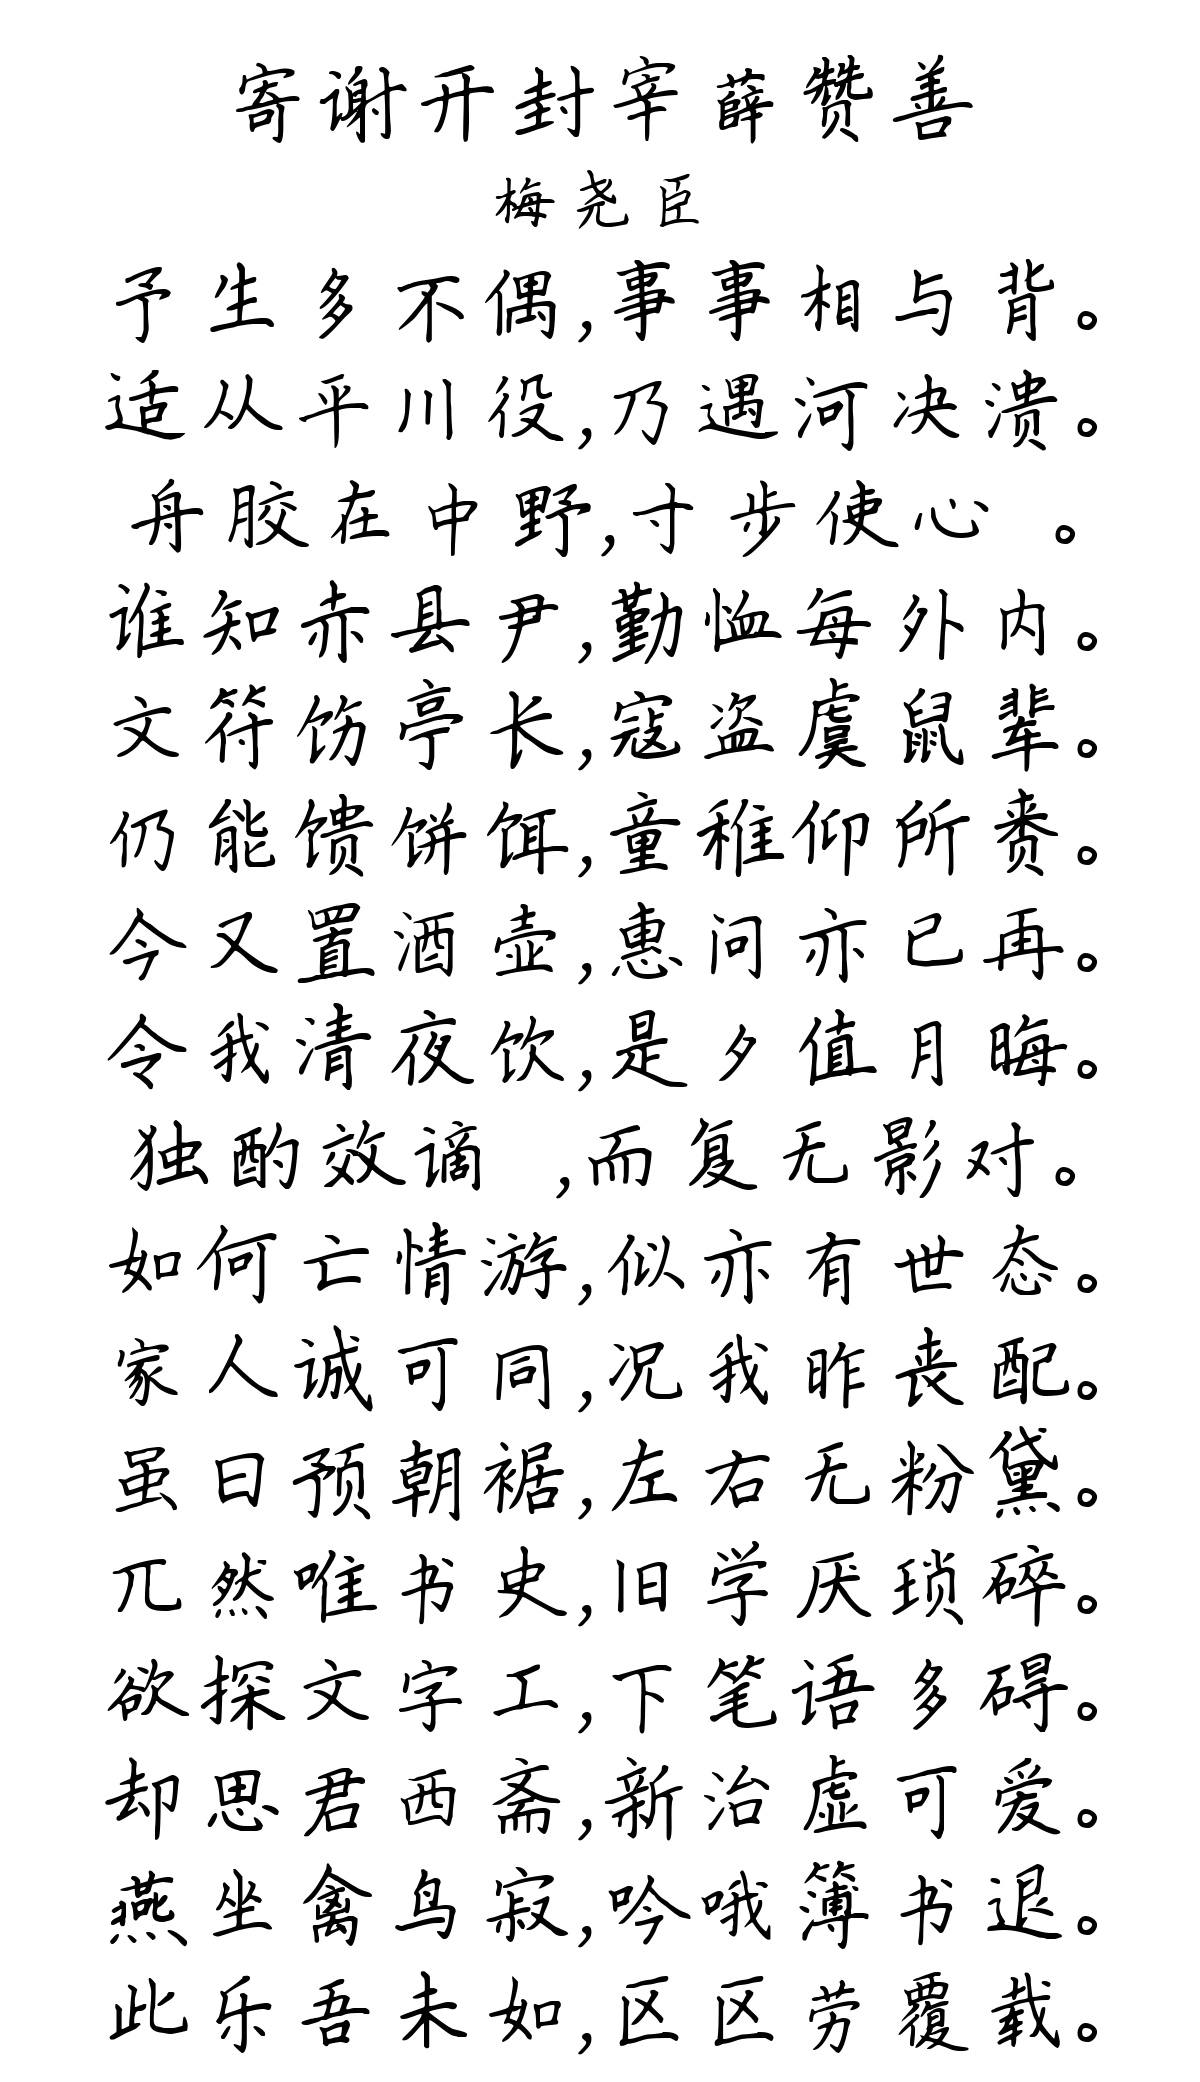 寄谢开封宰薛赞善
梅尧臣
予生多不偶,事事相与背。
适从平川役,乃遇河决溃。
舟胶在中野,寸步使心 。
谁知赤县尹,勤恤每外内。
文符饬亭长,寇盗虞鼠辈。
仍能馈饼饵,童稚仰所赉。
今又置酒壶,惠问亦已再。
令我清夜饮,是夕值月晦。
独酌效谪 ,而复无影对。
如何亡情游,似亦有世态。
家人诚可同,况我昨丧配。
虽曰预朝裾,左右无粉黛。
兀然唯书史,旧学厌琐碎。
欲探文字工,下笔语多碍。
却思君西斋,新治虚可爱。
燕坐禽鸟寂,吟哦簿书退。
此乐吾未如,区区劳覆载。